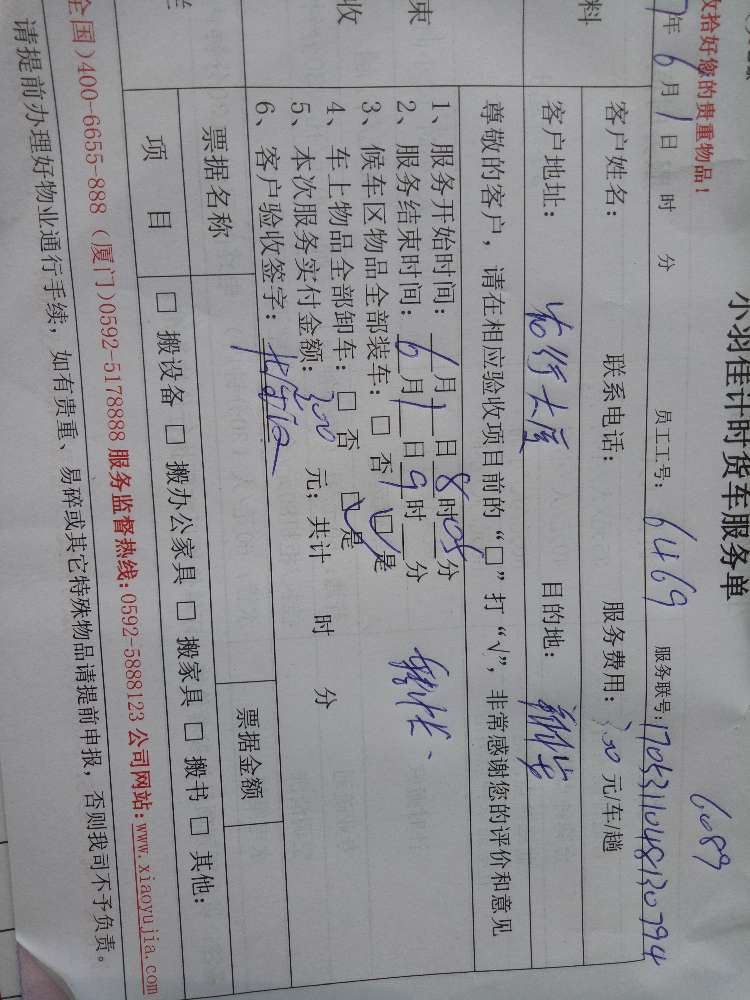 小羽佳计时货车服务单
6089
收拾好您的贵重物品！
年6月1日 时 分 员工工号：6469 服务联号：1705311048130794
料 客户姓名： 联系电话： 服务费用：300元/车/趟
客户地址： 大厦 目的地：
尊敬的客户，请在相应验收项目前的“□”打“√”，非常感谢您的评价和意见
束
收
1、服务开始时间：6月1日8时05分
2、服务结束时间：6月1日9时 分
3、候车区物品全部装车：□ 否 □ 是
4、车上物品全部卸车：□ 否 □ 是
5、本次服务实付金额：300 元；共计 时 分
6、客户验收签字：
票据名称 票据金额
项 目 □ 搬设备 □ 搬办公家具 □ 搬家具 □ 搬书 □ 其他：
全国)400-6655-888 (厦门)0592-5178888 服务监督热线:0592-5888123 公司网站:www.xiaoyujia.com
请提前办理好物业通行手续，如有贵重、易碎或其它特殊物品请提前申报，否则我司不予负责。